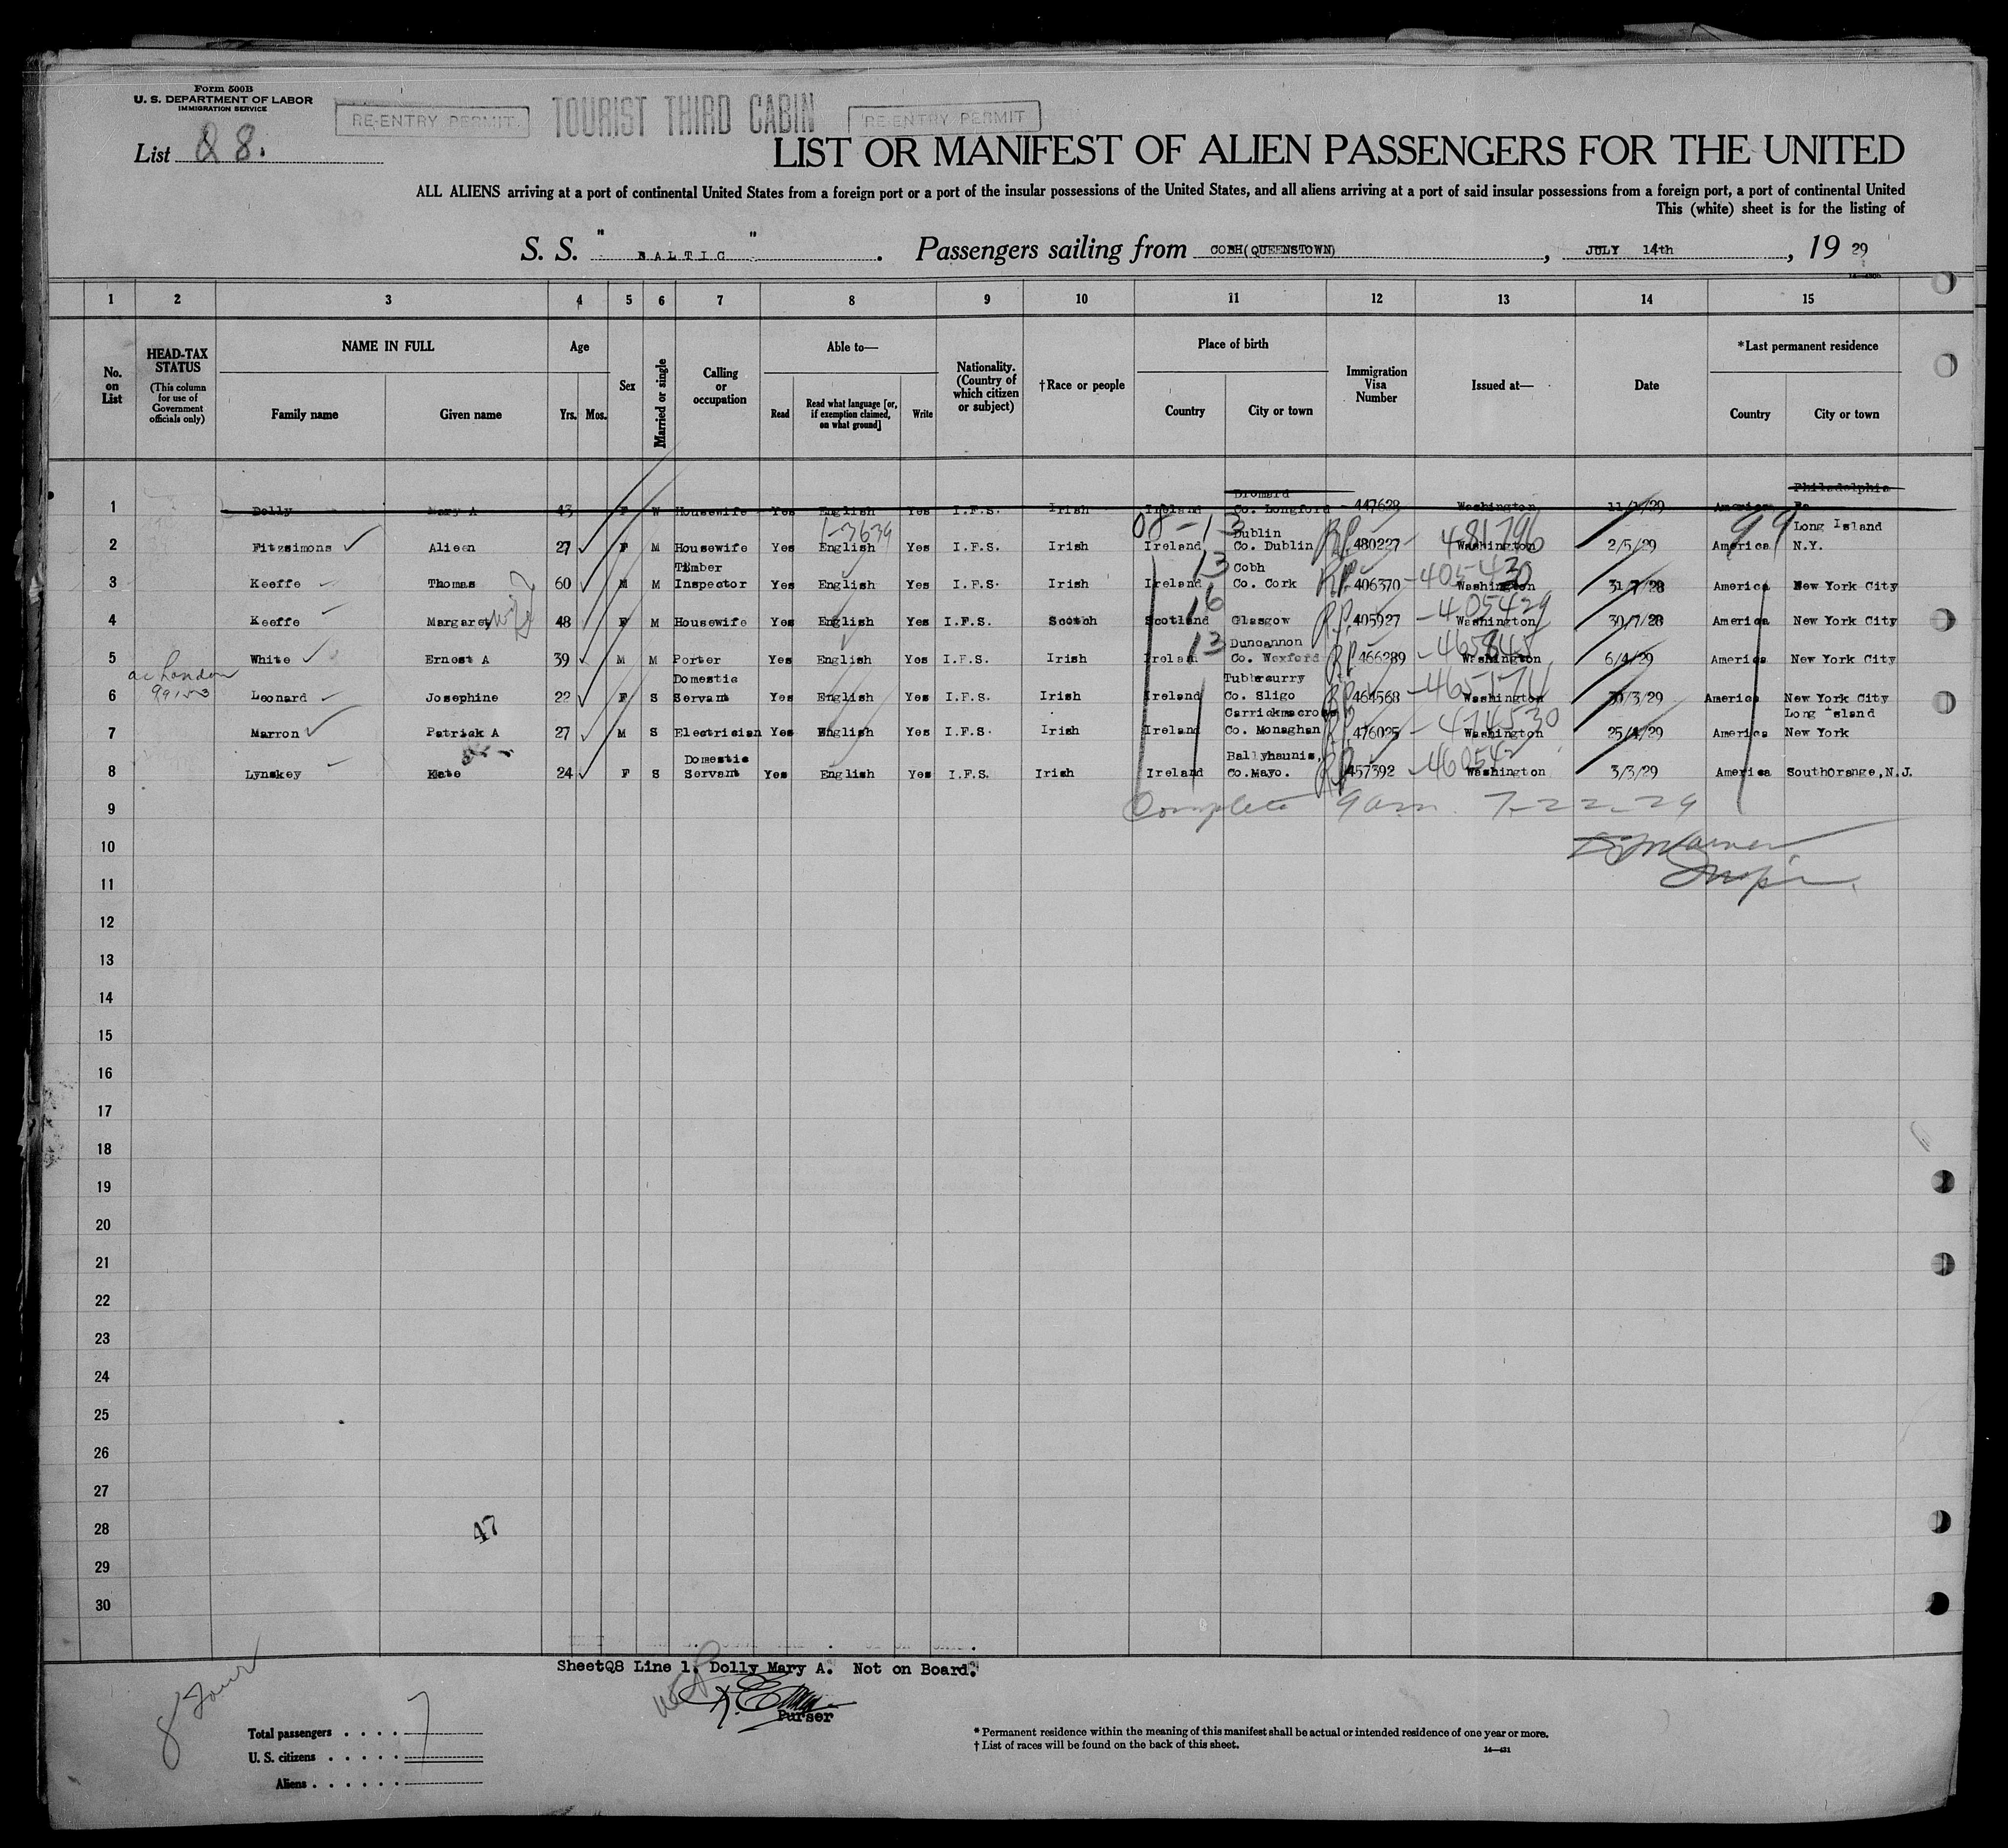 Form 500B
U. S. DEPARTMENT OF LABOR
IMMIGRATION SERVICE
RE-ENTRY PERMIT TOURIST THIRD CABIN RE-ENTRY PERMIT
List Q 8.
LIST OR MANIFEST OF ALIEN PASSENGERS FOR THE UNITED
ALL ALIENS arriving at a port of continental United States from a foreign port or a port of the insular possessions of the United States, and all aliens arriving at a port of said insular possessions from a foreign port, a port of continental United
This (white) sheet is for the listing of
S. S. " BALTIC " . Passengers sailing from COBH(QUEENSTOWN) , JULY 14th , 19 29
1 2 3 4 5 6 7 8 9 10 11 12 13 14 15
No. on List
HEAD-TAX STATUS (This column for use of Government officials only)
NAME IN FULL
Family name Given name
Age
Yrs. Mos.
Sex
Married or single
Calling or occupation
Able to—
Read Read what language [or, if exemption claimed, on what ground] Write
Nationality. (Country of which citizen or subject)
†Race or people
Place of birth
Country City or town
Immigration Visa Number
Issued at—
Date
*Last permanent residence
Country City or town
Dromard Philadelphia
1 Dolly Mary A 43 F W Housewife Yes English Yes I.F.S. Irish Ireland Co. Longford 447628 Washington 11/1/29 America Pa
1-3639 08-13 Dublin 481796 99 Long Island
2 Fitzsimons Alieen 27 F M Housewife Yes English Yes I.F.S. Irish Ireland Co. Dublin RP 480227 Washington 2/5/29 America N.Y.
Timber 13 Cobh -405430
3 Keeffe Thomas 60 M M Inspector Yes English Yes I.F.S. Irish Ireland Co. Cork RP 406370 Washington 31/7/28 America New York City
16 -405429
4 Keeffe Margaret wife 48 F M Housewife Yes English Yes I.F.S. Scotch Scotland Glasgow RP 405927 Washington 30/7/28 America New York City
13 Duncannon -465845
5 White Ernest A 39 M M Porter Yes English Yes I.F.S. Irish Irelan Co. Wexford RP 466289 Washington 6/4/29 America New York City
ac London Domestic Tubbercurry
6 99153 Leonard Josephine 22 F S Servant Yes English Yes I.F.S. Irish Ireland Co. Sligo RP 464568 Washington 30/3/29 America New York City
Carrickmacross -474530 Long Island
7 Marron Patrick A 27 M S Electrician Yes English Yes I.F.S. Irish Ireland Co. Monaghan RP 476025 Washington 25/4/29 America New York
Domestic Ballyhaunis,
8 Lynskey Kate 24 F S Servant Yes English Yes I.F.S. Irish Ireland Co.Mayo. RP 457392 -460542 Washington 3/3/29 America SouthOrange,N.J.
9 Complete 9am. 7-22-29
10
11 Insp.
12
13
14
15
16
17
18
19
20
21
22
23
24
25
26
27
28 47
29
30
SheetQ8 Line 1. Dolly Mary A. Not on Board.
Purser
Total passengers . . . . 7
U. S. citizens . . . . .
Aliens . . . . . .
* Permanent residence within the meaning of this manifest shall be actual or intended residence of one year or more.
† List of races will be found on the back of this sheet.